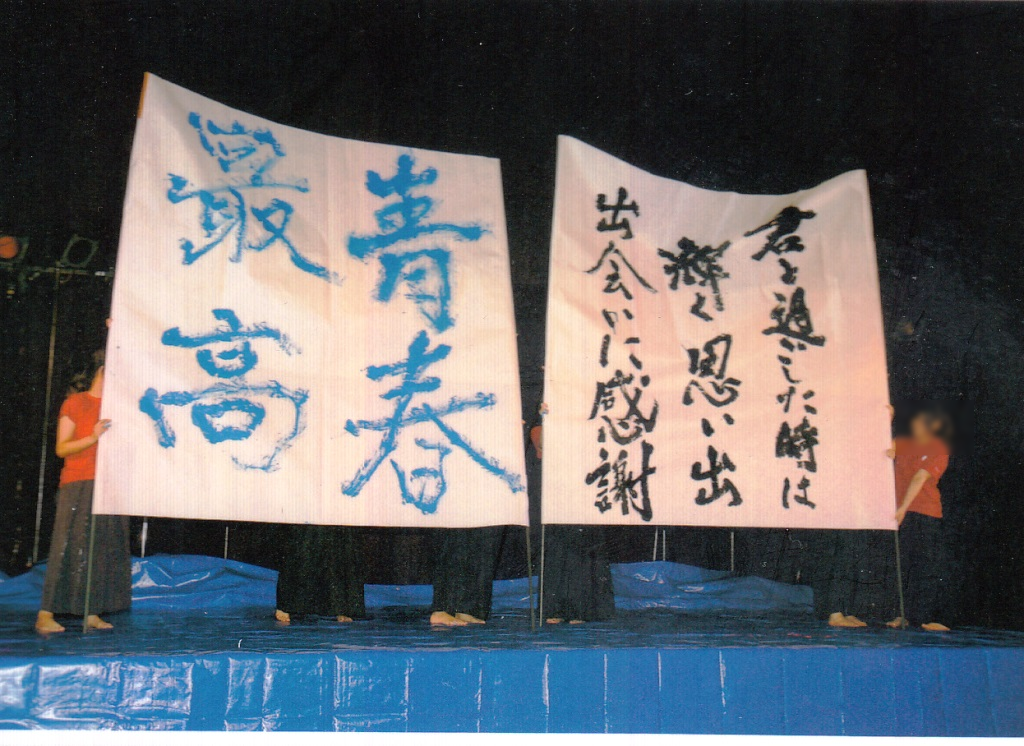 君と過ごした時は
輝く思い出
出会いに感謝
青春
最高